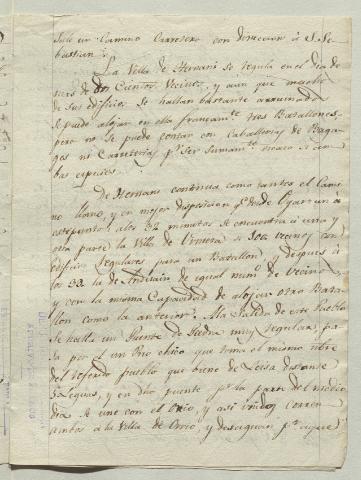 Sale un Camino Carretero con direccion à S. Se
bastian.
La Villa de Hernani se regula en el dia de
mas de dos Cientos Vecinos, y aun que mucho
de sus edificios se hallan bastante arruinados
se puede alojar en ella tres Batallones,
pero no se puede contar con Caballerias de Baga
ges ni Carreteria pr. ser sumamte.
bas especies.
De Hernani continua como tantos el Cami
no llano, y en mejor disposicion qe. desde Oyarzun a
este punto, a los 32 minutos se encuentra à una y
otra parte la Villa de Urnieta de 300 vecinos con
edificios regulares para un Batallon, y despues à
los 33. la de Andoain de igual num.o de Vecinos,
y con la misma Capacidad de alojar otro Bata
llon como la anterior. A la Salida de este Pueblo
se halla un Puente de Piedra muy regular, pa
sa por el un Rio chico que toma el mismo titulo
del referido pueblo que biene de Leiza distante
5 Leguas, y en dho puente pr. la parte del medio
dia se une con el Orio, y asi unidos corren
ambos a la Villa de Orio, y desaguan pr. aquel